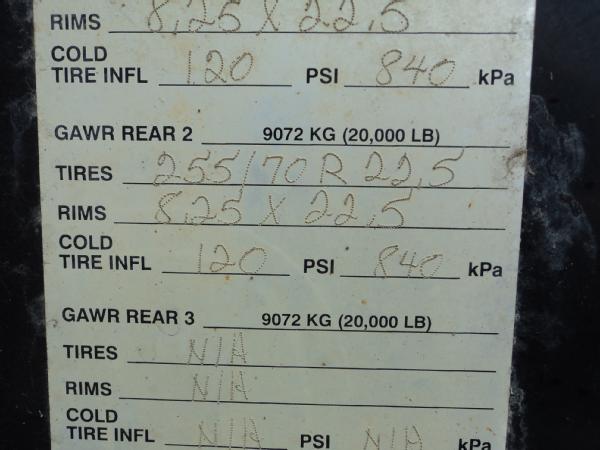 RIMS 8.25 X 22.5
COLD
TIRE INFL 120 PSI 840 kPa
GAWR REAR 2 9072 KG (20,000 LB)
TIRES 255/70 R 22.5
RIMS 8.25 X 22.5
COLD
TIRE INFL 120 PSI 840 kPa
GAWR REAR 3 9072 KG (20,000 LB)
TIRES N/A
RIMS N/A
COLD
TIRE INFL N/A PSI N/A kPa